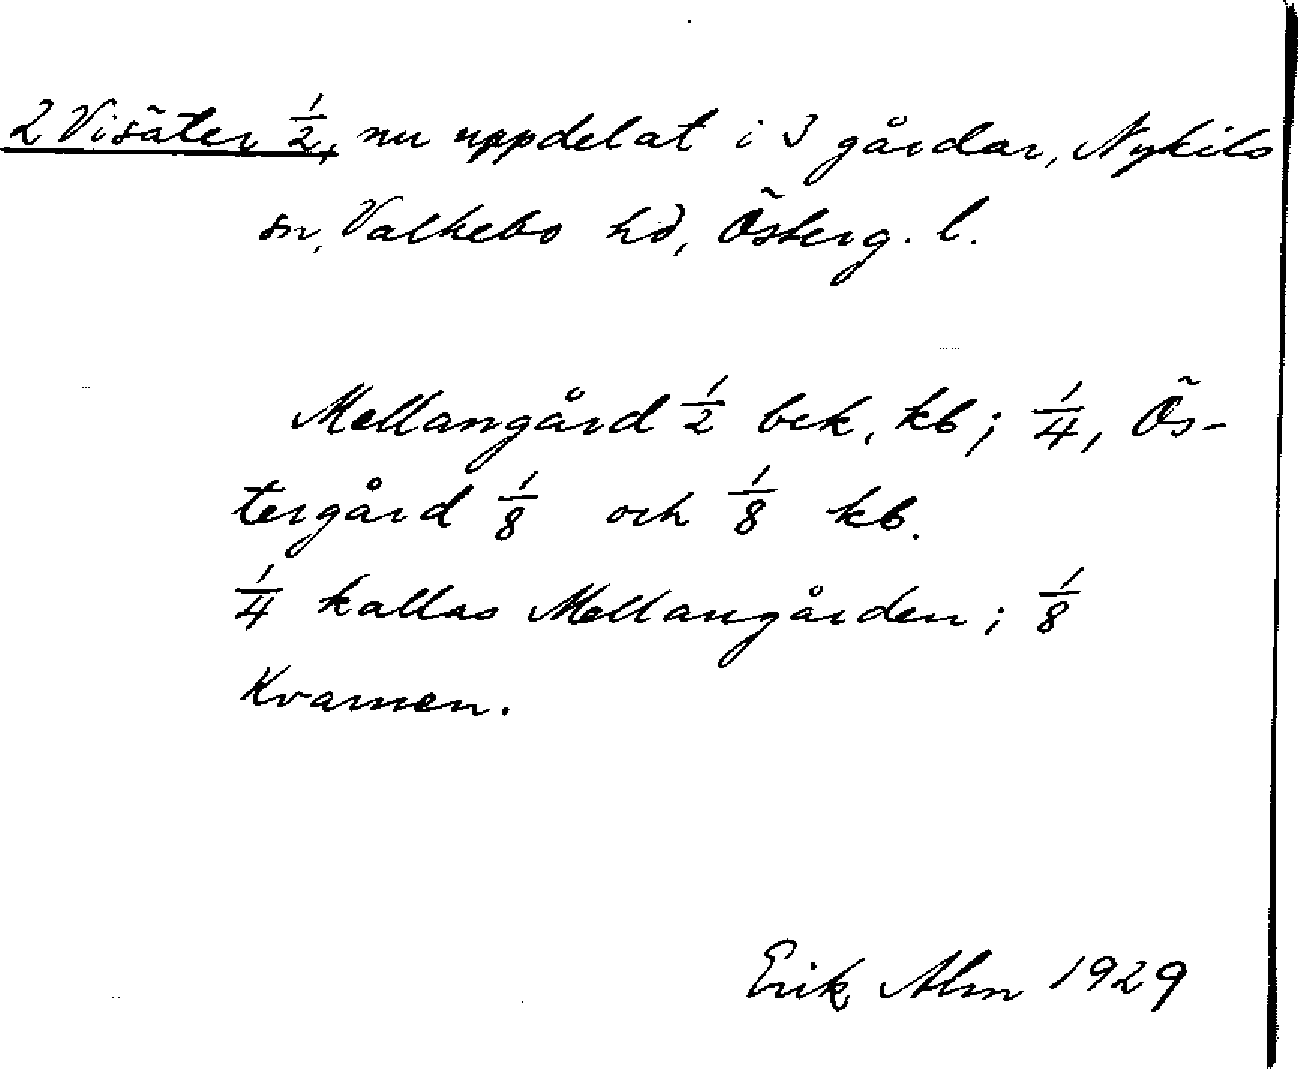 2 Visäter 1/2, nu uppdelat i 3 gårdar, Nykils
sn, Valkebo hd, Österg. l.
Mellangård 1/2 bek, kb; 1/4, Ös-
tergård 1/8 och 1/8 kb.
1/4 kallas Mellangården; 1/8
Kvarnen.
Erik Alm 1929